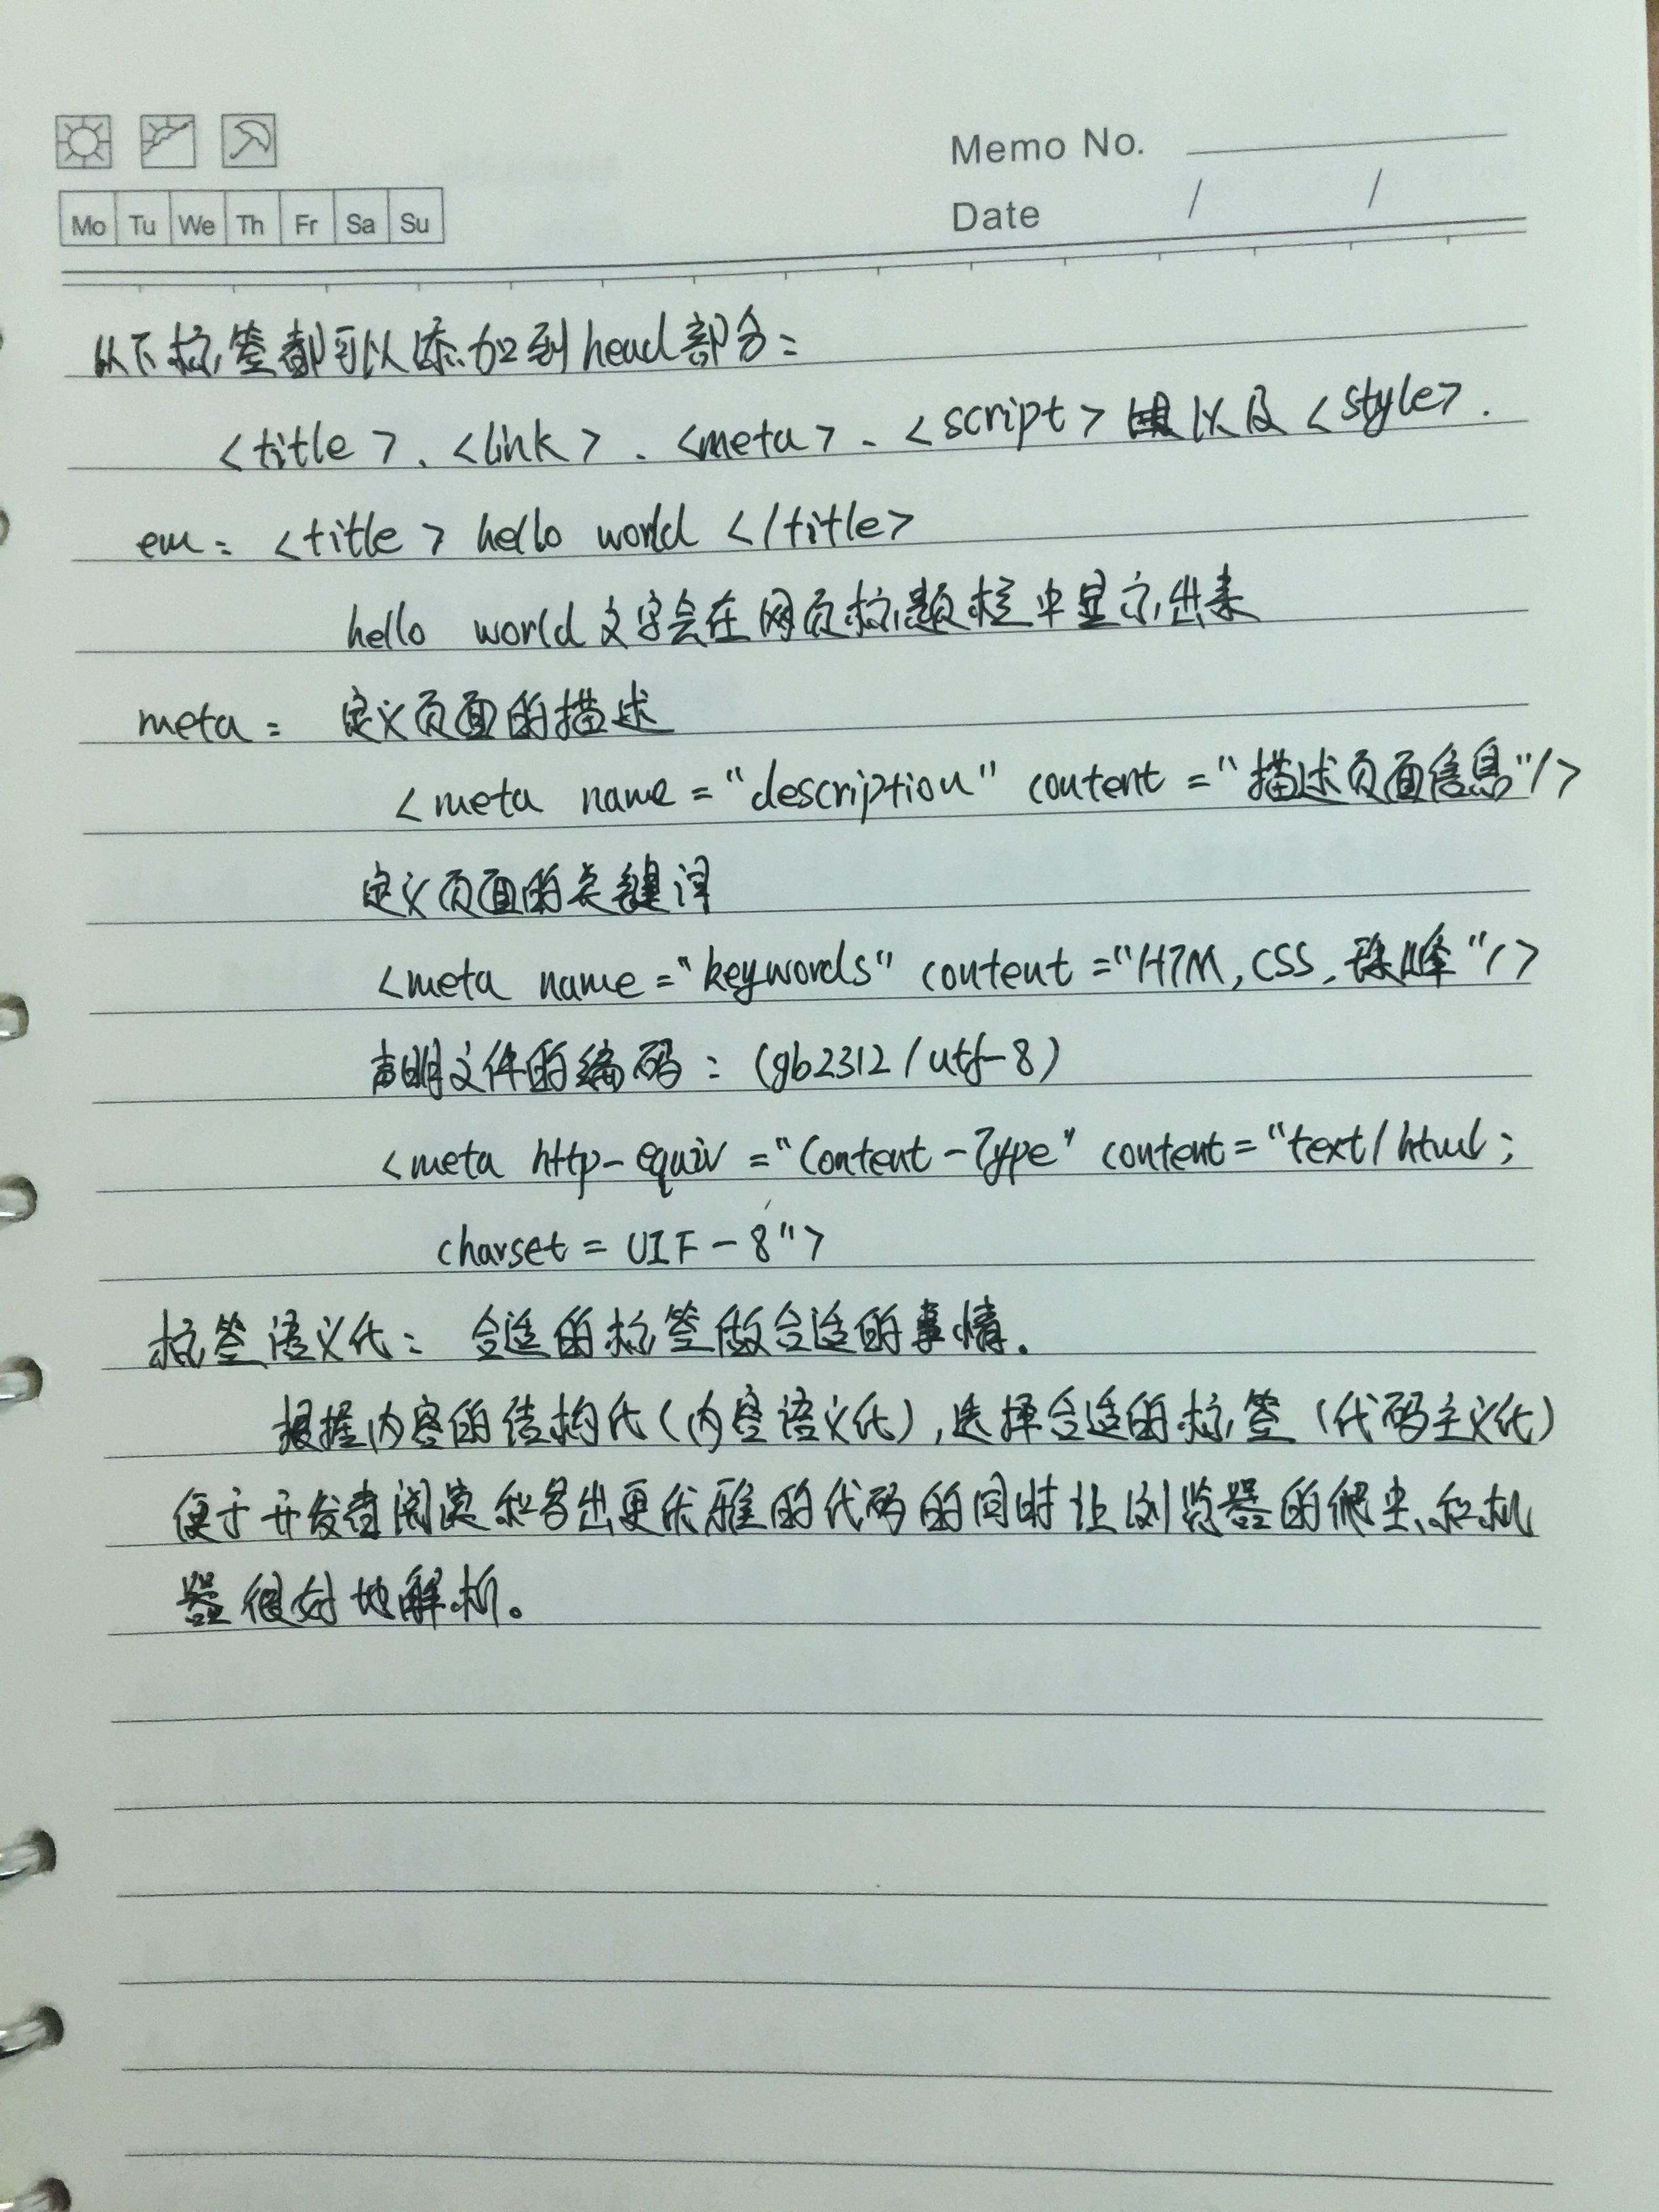 Memo No.
Mo Tu We Th Fr Sa Su
Date / /
以下标签都可以添加到head部分:
<title>、<link>、<meta>、<script>以及<style>.
em: <title> hello world </title>
hello world文字会在网页标题栏中显示出来
meta: 定义页面的描述
<meta name="description" content="描述页面信息"/>
定义页面的关键词
<meta name="keywords" content="HTM,CSS,珠峰"/>
声明文件的编码:(gb2312/utf-8)
<meta http-equiv="Content-Type" content="text/html;
charset=UTF-8">
标签语义化: 合适的标签做合适的事情.
根据内容的结构化(内容语义化),选择合适的标签(代码主义化)
便于开发者阅读和写出更优雅的代码的同时让浏览器的爬虫和机
器很好地解析。